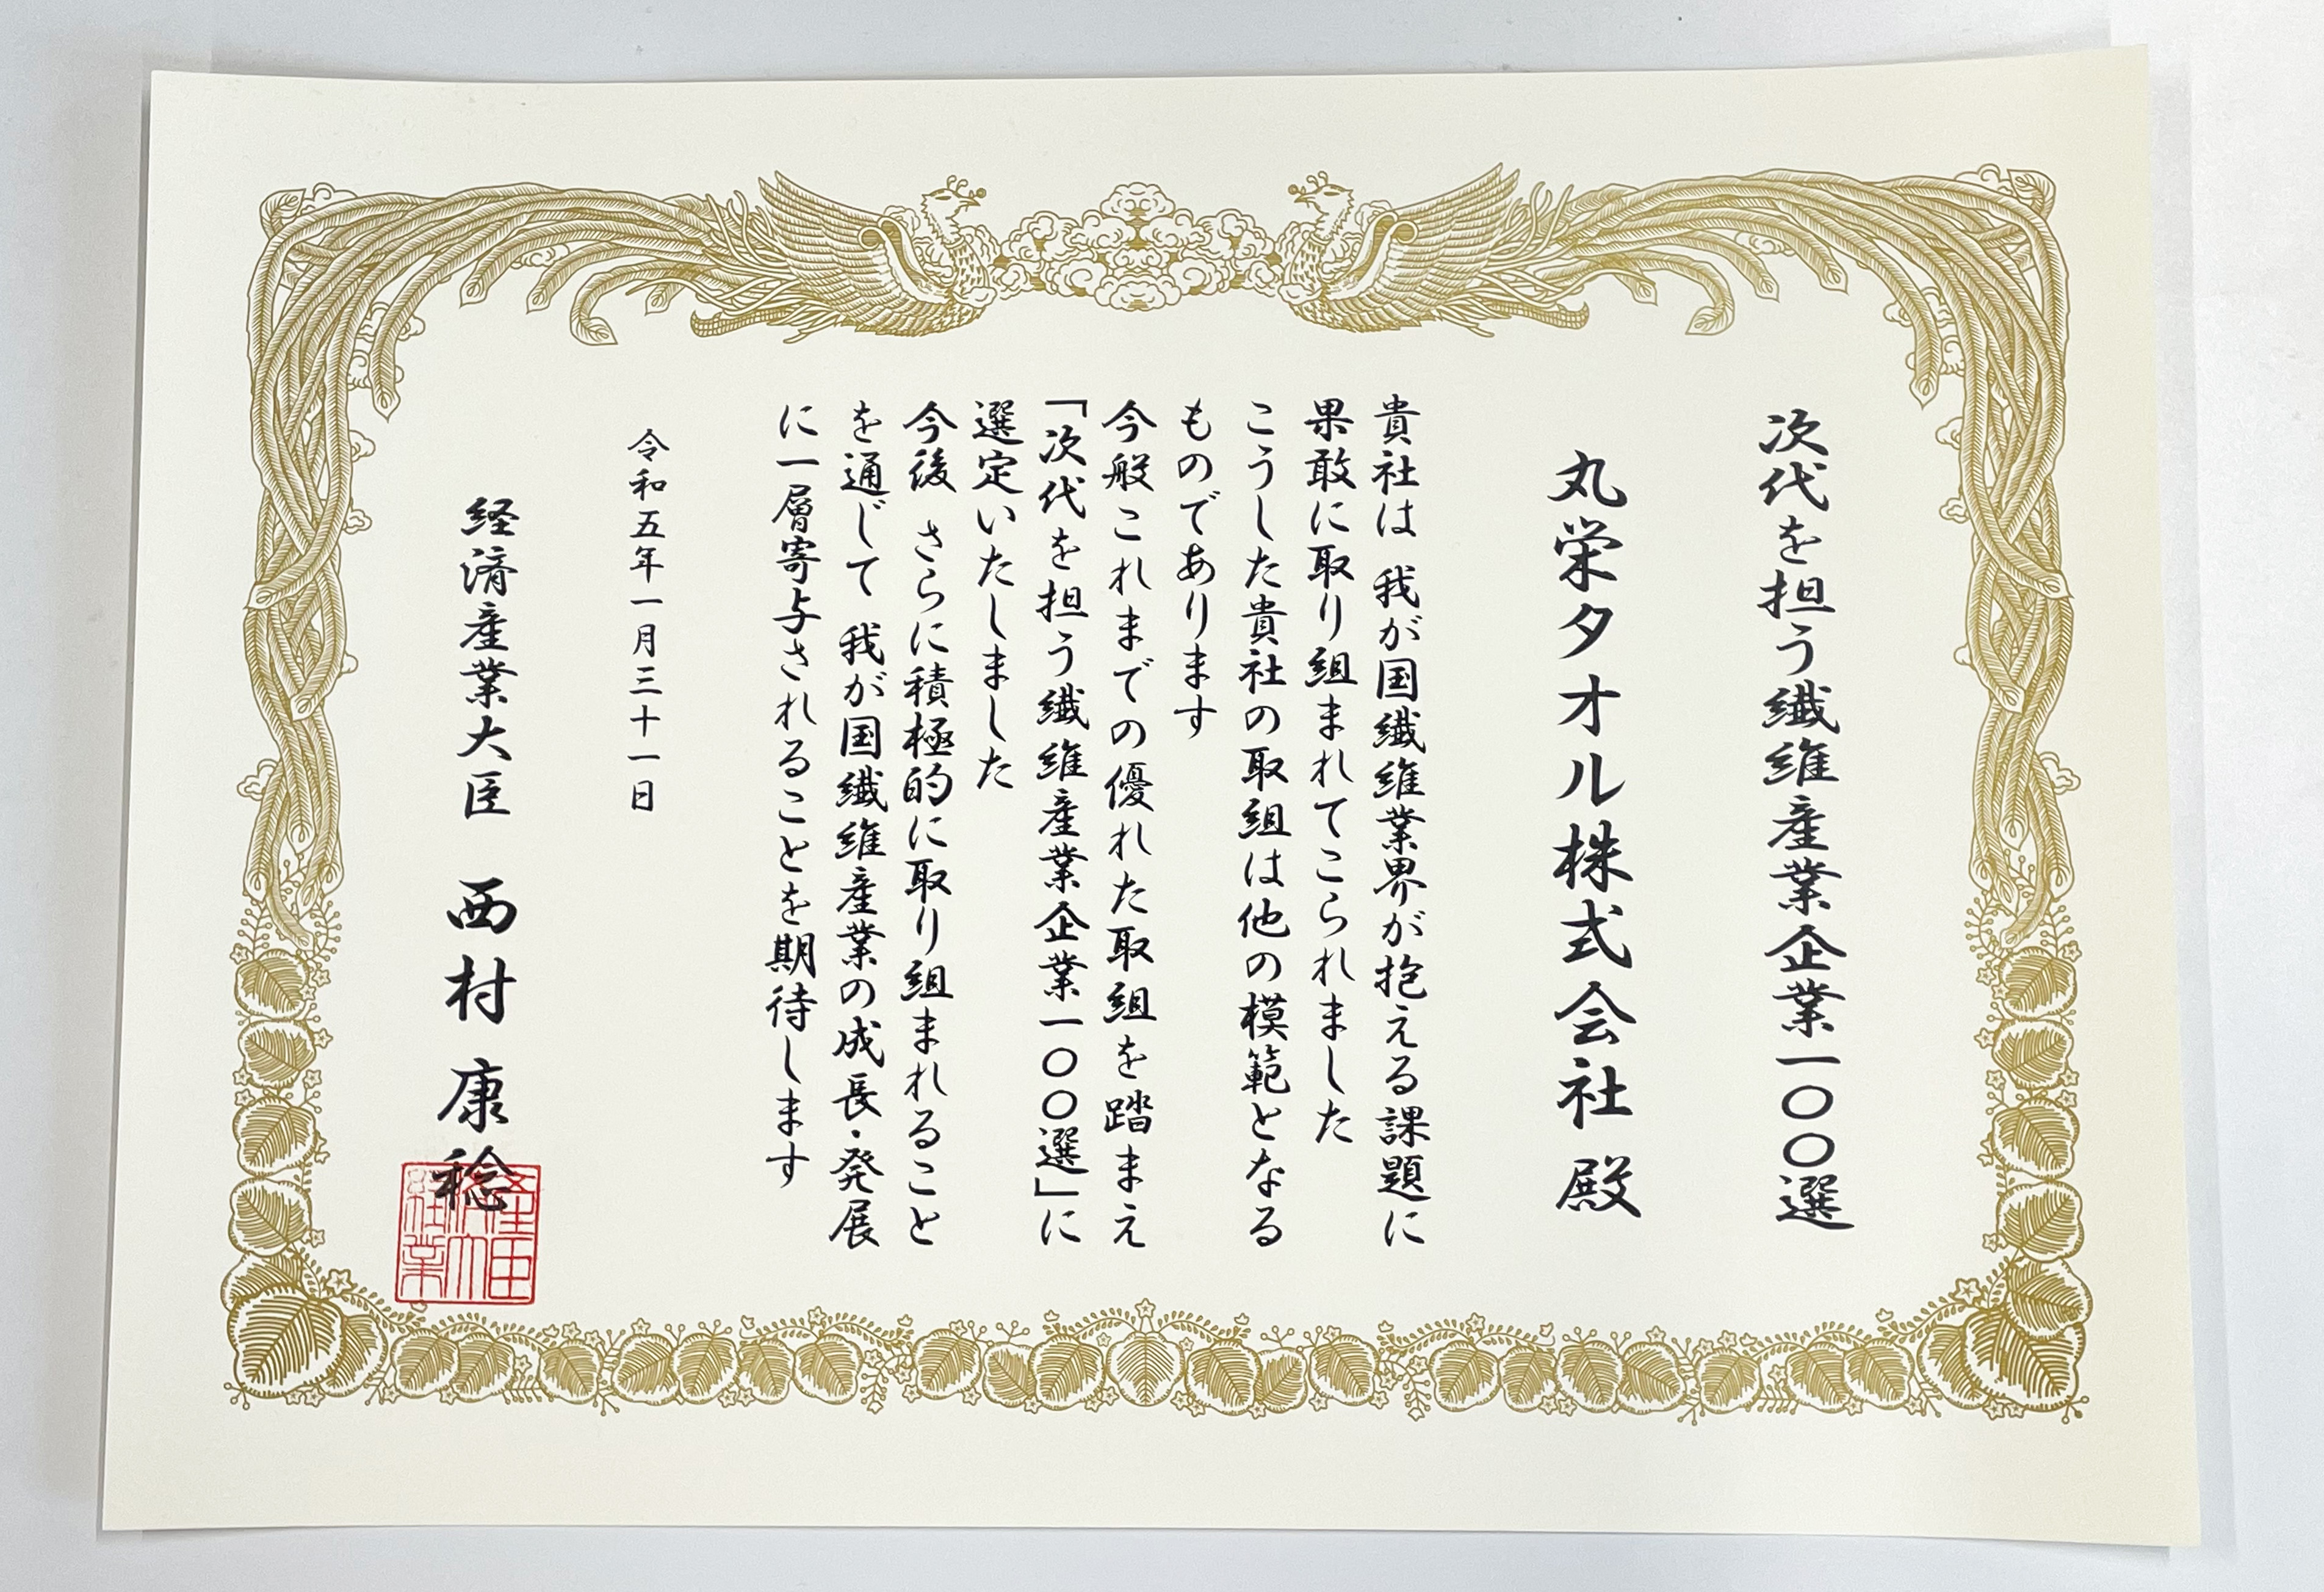 次代を担う繊維産業企業一〇〇選
丸栄タオル株式会社 殿
貴社は 我が国繊維業界が抱える課題に
果敢に取り組まれてこられました
こうした貴社の取組は他の模範となる
ものであります
今般これまでの優れた取組を踏まえ
「次代を担う繊維産業企業一〇〇選」に
選定いたしました
今後 さらに積極的に取り組まれること
を通じて 我が国繊維産業の成長・発展
に一層寄与されることを期待します
令和五年一月三十一日
経済産業大臣 西村 康稔